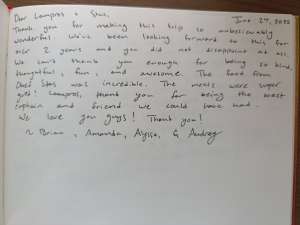 Dear Lampros + Stas, June 27, 2022
Thank you for making this trip so unbelievably
wonderful. We've been looking forward to this for
over 2 years and you did not disappoint at all.
We can't thank you enough for being so kind,
thoughtful, fun, and awesome. The food from
Chef Stas was incredible. The meals were super
! Lampros, thank you for being the best
captain and friend we could have had.
We love you guys! Thank you!
~ Brian, Amanda, Alyssa, & Audrey